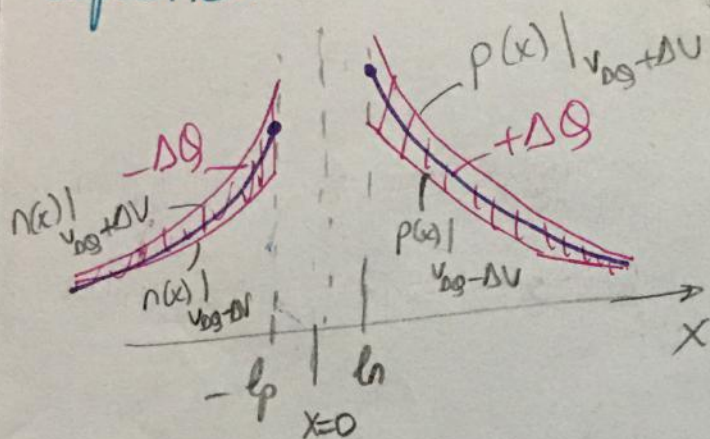 p(x)|V_DQ+ΔV
-ΔQ
+ΔQ
n(x)|V_DQ+ΔV
p(x)|V_DQ-ΔV
n(x)|V_DQ-ΔV
X
-lp
ln
X=0